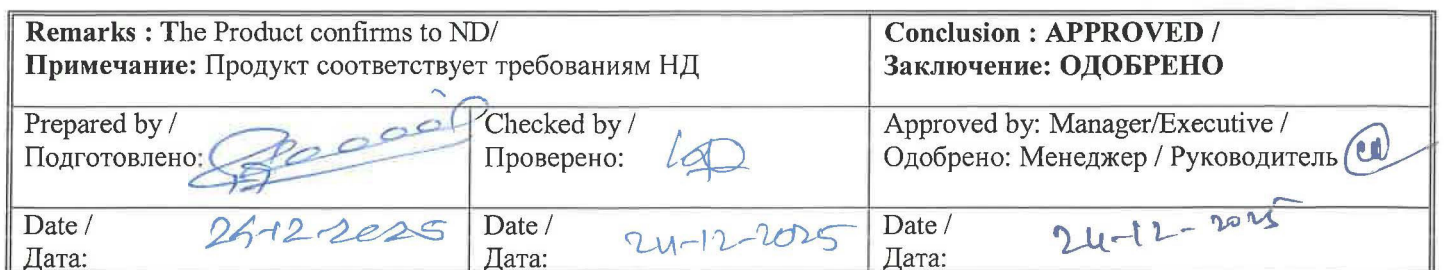 Remarks : The Product confirms to ND/
Примечание: Продукт соответствует требованиям НД
Conclusion : APPROVED /
Заключение: ОДОБРЕНО
Prepared by /
Подготовлено:
Checked by /
Проверено:
Approved by: Manager/Executive /
Одобрено: Менеджер / Руководитель
Date /
Дата: 24-12-2025
Date /
Дата: 24-12-2025
Date /
Дата: 24-12-2025